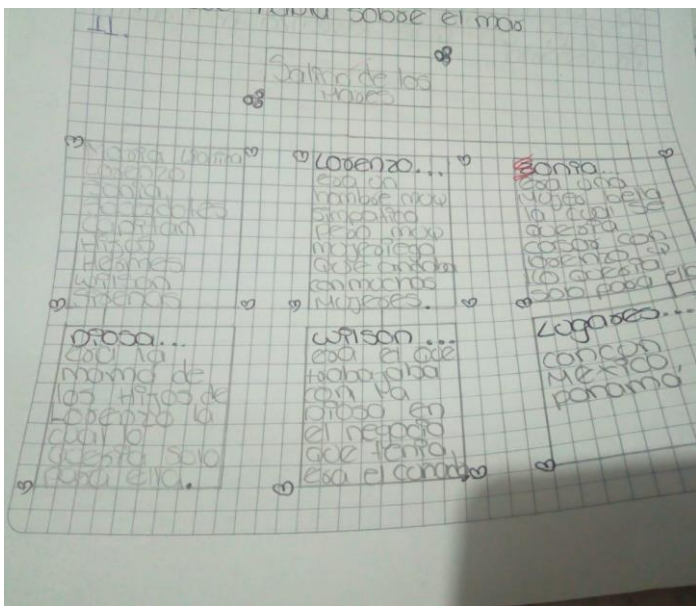 sobre el mar
11.
Salmo de los
Mares
Maria
Lorenzo
Sonia
Pescadores
Capitan
Hijos
Hermes
Wilson
Sirenas
Lorenzo...
era un
hombre muy
simpatico
pero muy
mujeriego
que andaba
con muchas
Mujeres.
Sonia...
era una
mujer bella
la cual se
queria
casar con
Lorenzo y
lo queria
solo para ella
Diosa...
era la
mamá de
los Hijos de
Lorenzo la
cual lo
queria solo
para ella.
Wilson...
era el que
trabajaba
con la
Diosa en
el negocio
que tenia,
era el
Lugares...
concon
Mexico,
panamá,